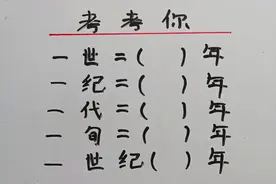 考考你
一世=( )年
一纪=( )年
一代=( )年
一旬=( )年
一世纪( )年